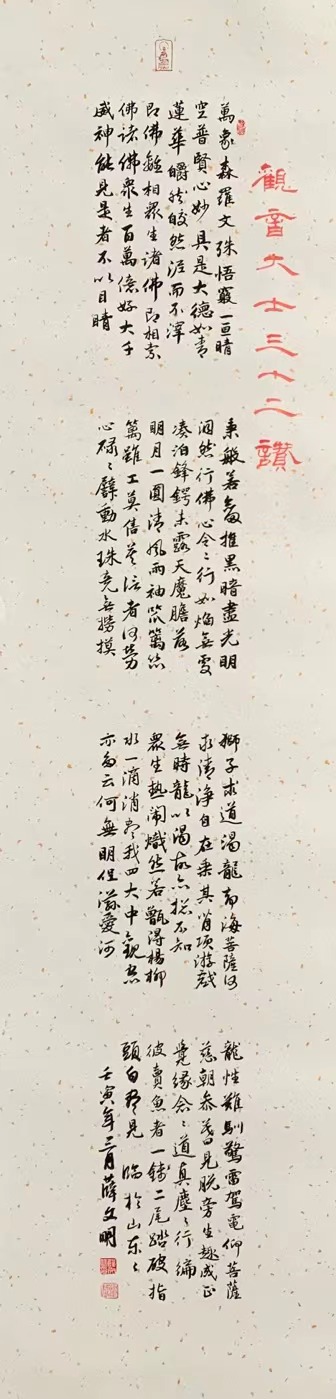 觀音大士三十二讚
萬象森羅文殊悟竅一亘晴
空普賢心妙具是大德如青
蓮華皭然皎然涅而不滓
即佛離相眾生諸佛即相索
佛諸佛眾生百萬億好大千
威神能見是者不以目睛
秉般若推黑暗盡光明
洞然行佛心令令行如焰無處
湊泊鋒鍔未露天魔膽落
明月一圓清風兩袖笊篱笊
篱雖工莫售者何勞
心碌碌動水珠竟無撈摸
獅子求道渴龍南海菩薩何
求清淨自在乘其背項游戲
無時龍以渴故亦摠不知
眾生熱鬧熾然若甑得楊柳
水一滴消盡我四大中觀
亦云何無明滋愛河
龍性難馴驚雷駕電仰菩薩
慈朝參暮見脫旁生趣成正
覺緣念念道真塵塵行徧
彼賣魚者一錢二尾踏破指
頭白見 臨於山東
壬寅年三月薛文明